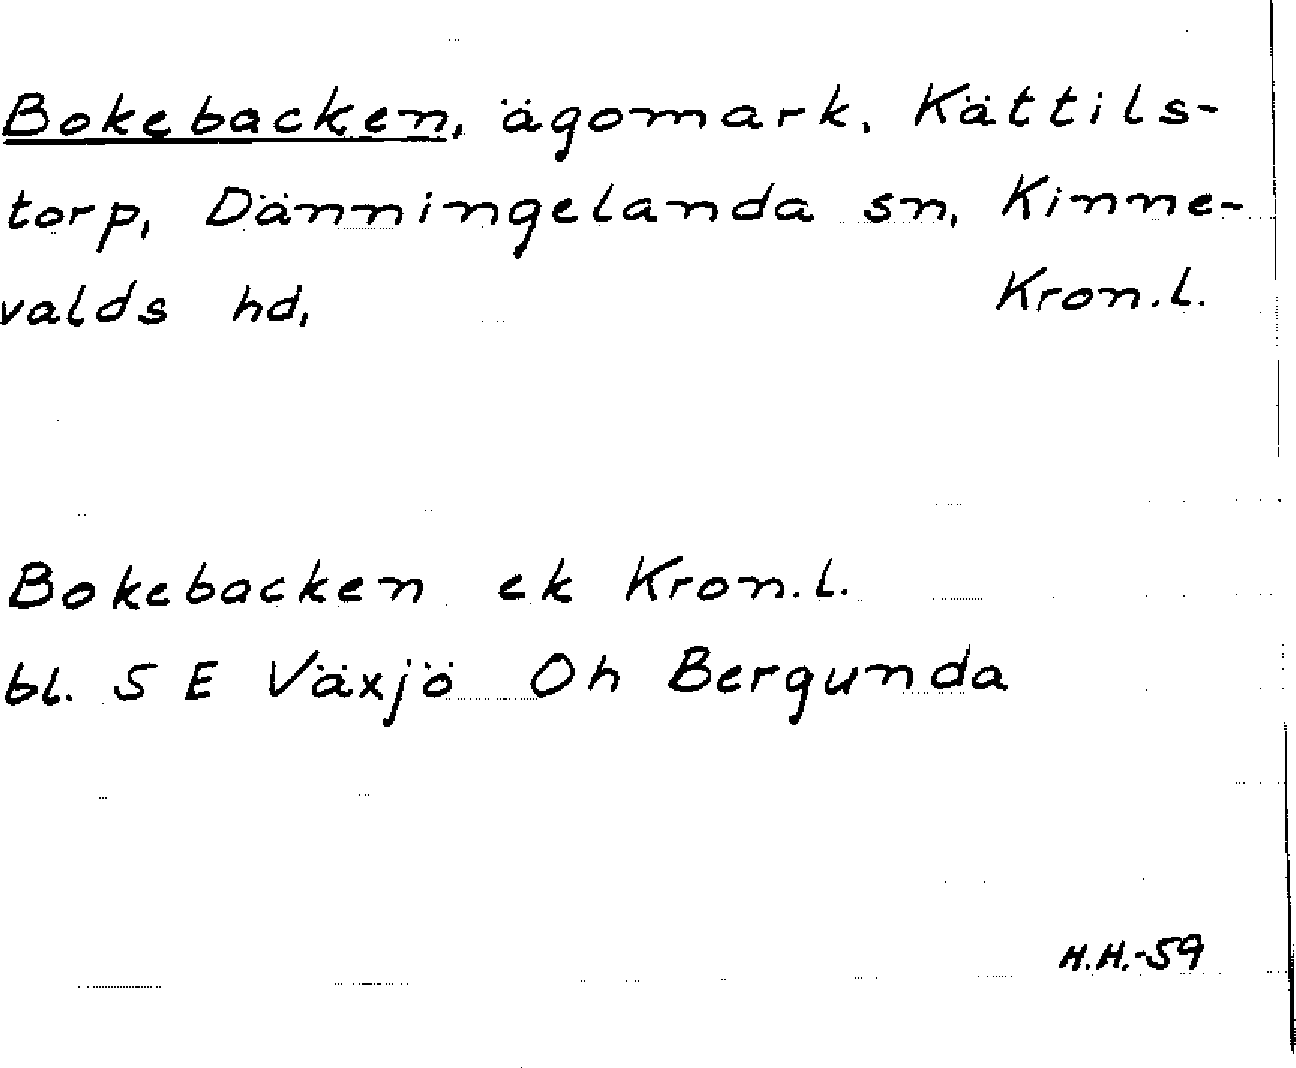 Bokebacken, ägomark, Kättils-
torp, Dänningelanda sn, Kinne-
valds hd, Kron.l.
Bokebacken ek Kron.l.
bl. S E Växjö Oh Bergunda
H.H.-59